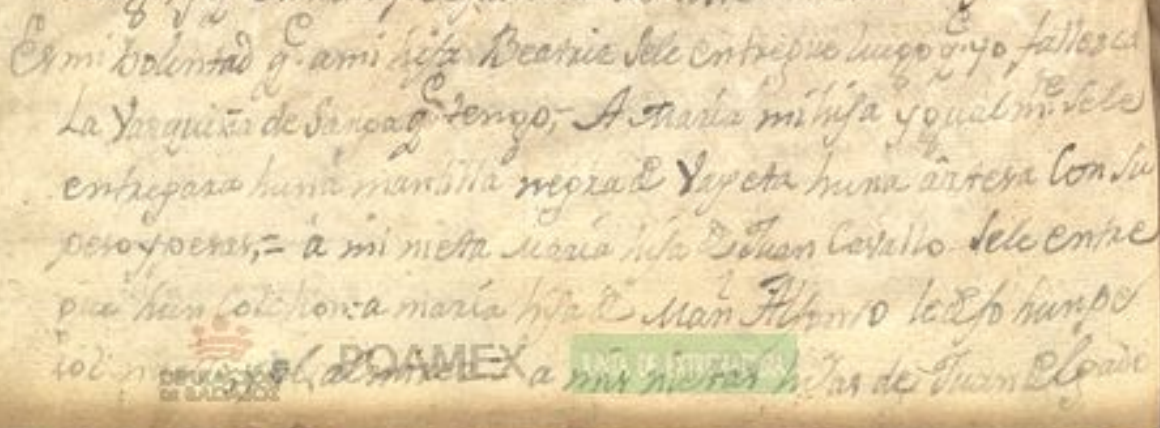 Es mi boluntad q.e a mi hija Beatriz sele entregue luego q.e yo fallesca
La Vasquiña de Sanga q.e tengo,- A Maria mi hija ygualm.te sele
entregara huna mantilla negra de Vayeta huna artesa Con su
peso y pesas,= a mi nieta Maria hija de Juan Cavallo sele entre
gue hun Colchon: a maria hija de Man.l Alfonso le dejo hun pe
a mis nietas hijas de Juan Delgado
DIPUTACIÓN
DE BADAJOZ
ROAMEX
JUNTA DE EXTREMADURA